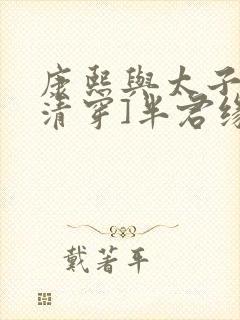 康熙與太子[
清穿]半君缘
戴著平